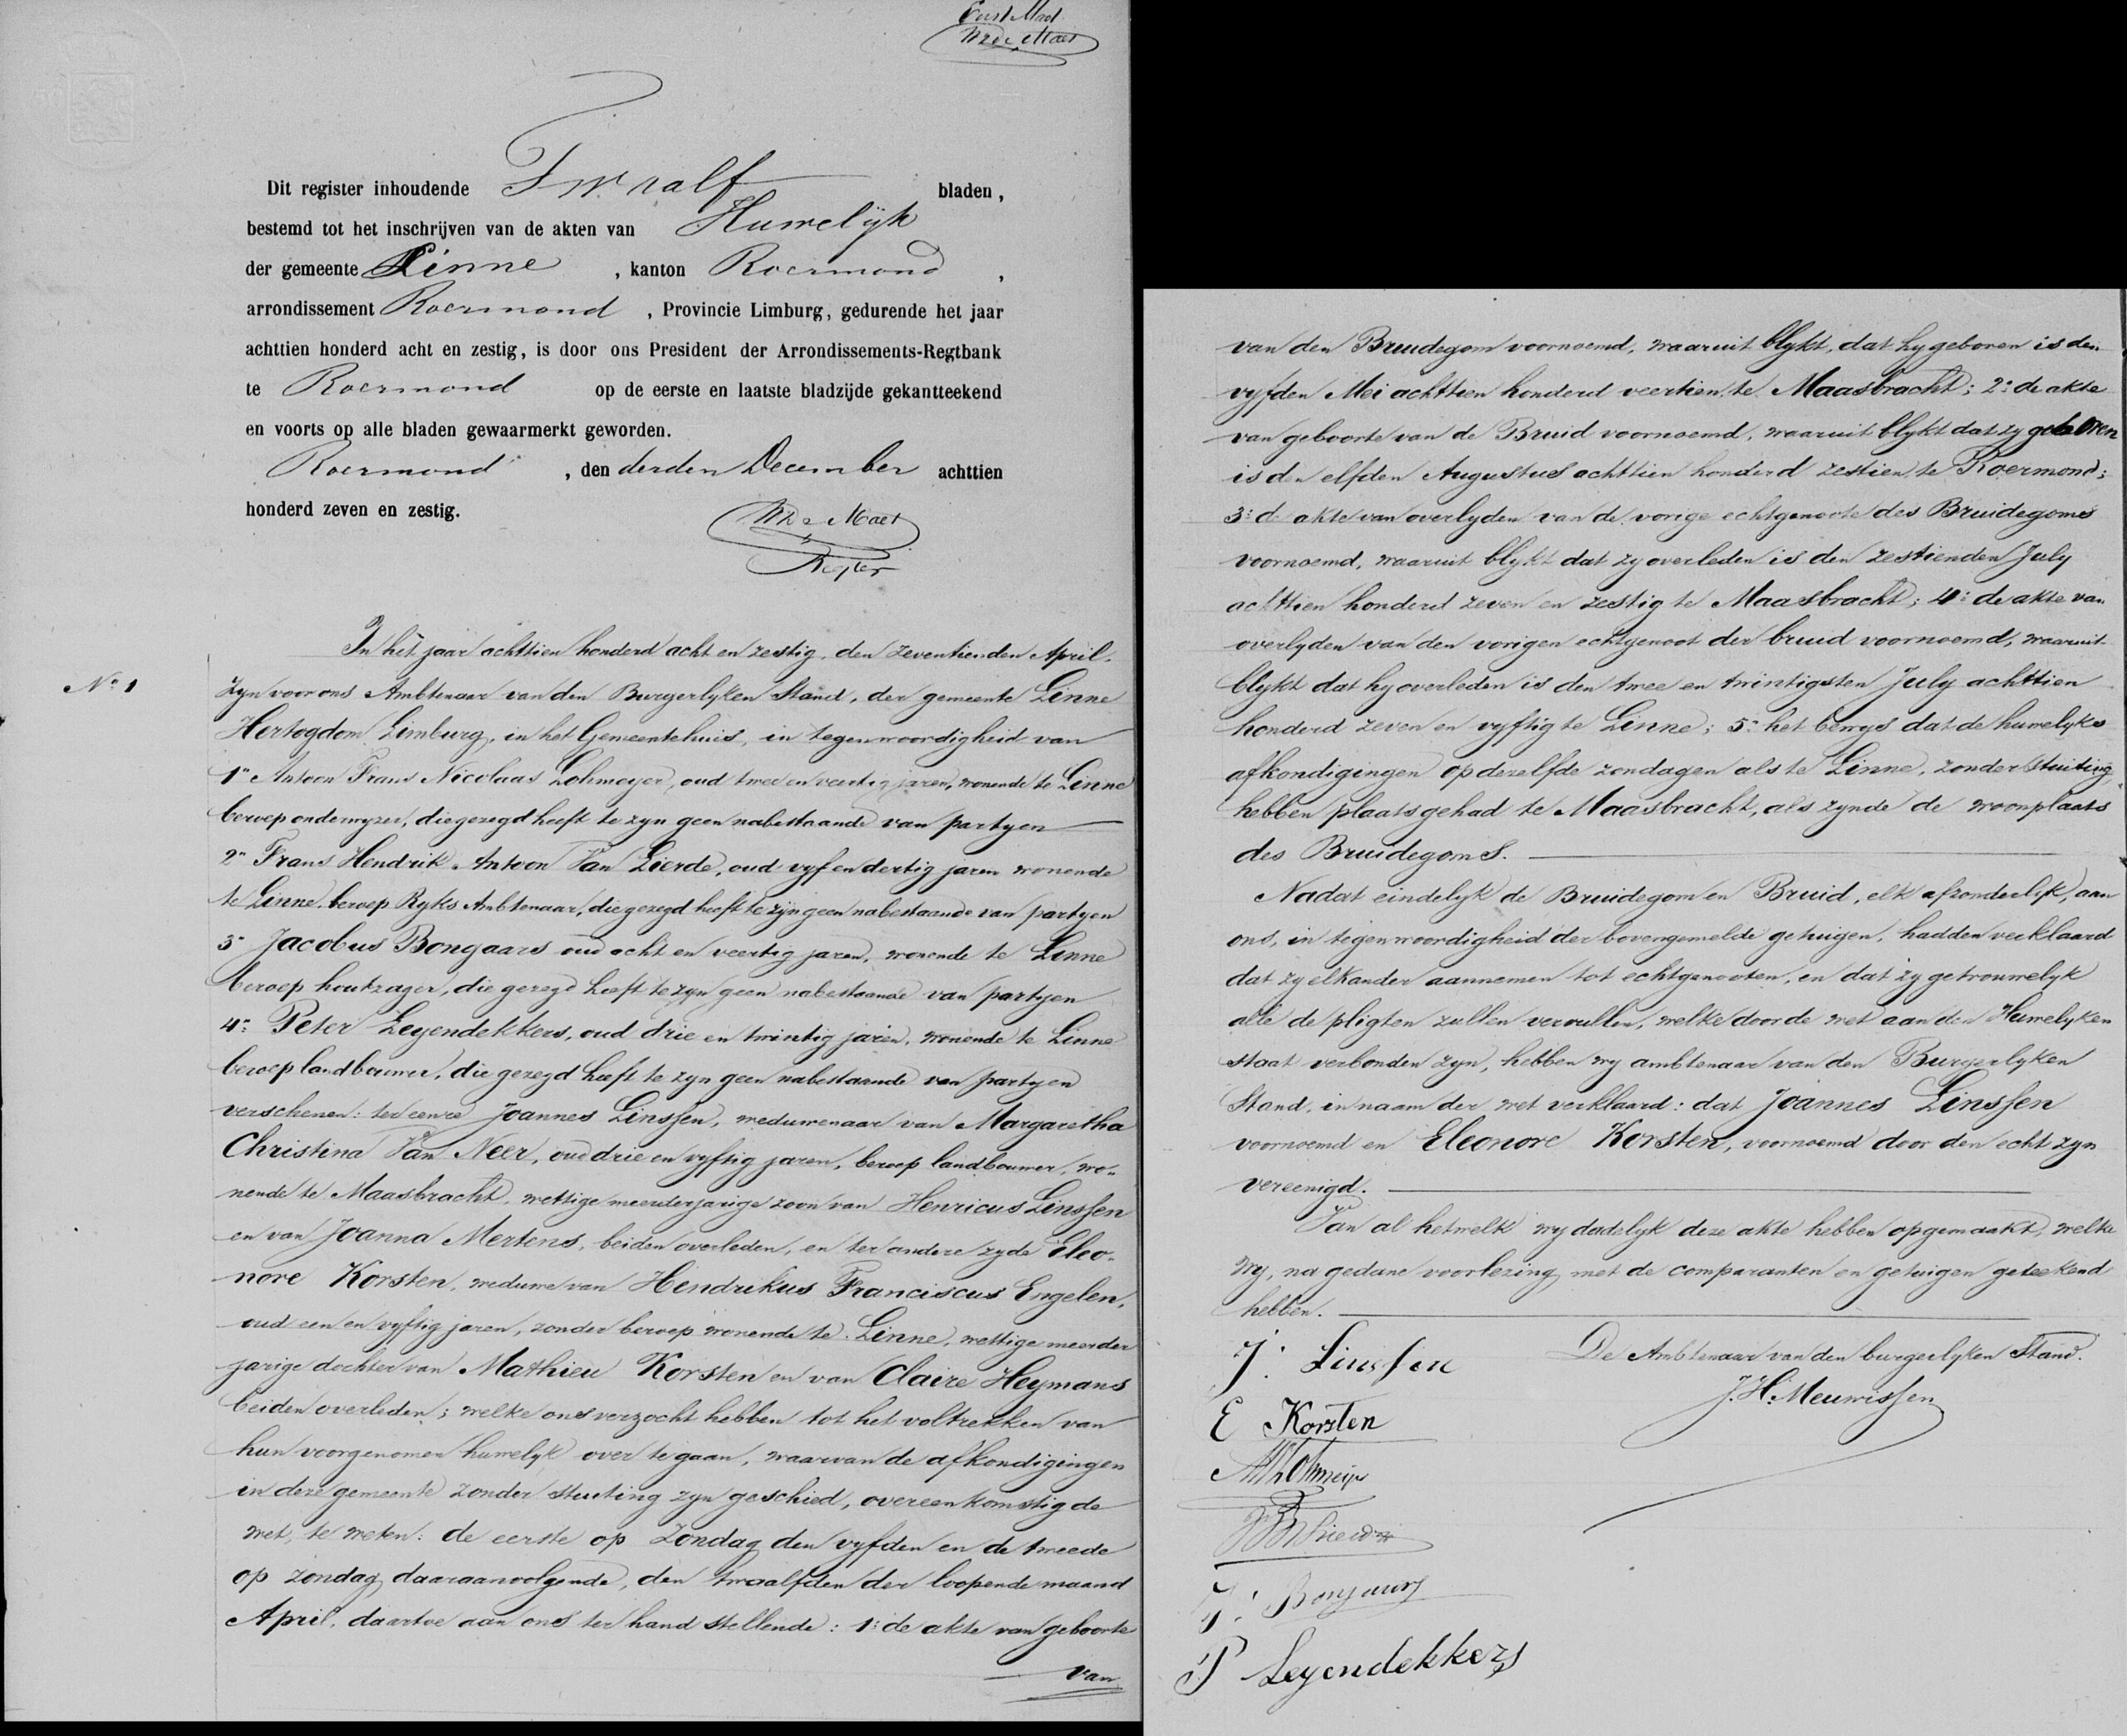 Eerst Blad
WDe Maes
Dit register inhoudende Twaalf bladen,
bestemd tot het inschrijven van de akten van Huwelijk
der gemeente Linne, kanton Roermond,
arrondissement Roermond, Provincie Limburg, gedurende het jaar
achttien honderd acht en zestig, is door ons President der Arrondissements-Regtbank
te Roermond op de eerste en laatste bladzijde gekantteekend
en voorts op alle bladen gewaarmerkt geworden.
Roermond, den derden December achttien
honderd zeven en zestig.
WDe Maes
Regter
In het jaar achttien honderd acht en zestig, den zeventienden April,
No 1 zyn voor ons Ambtenaar van den Burgerlyken Stand, der gemeente Linne
Hertogdom Limburg, in het Gemeentehuis, in tegenwoordigheid van
1o Antoon Frans Nicolaas Lohmeyer, oud twee en veertig jaren, wonende te Linne
beroep onderwyzer, die gezegd heeft te zyn geen nabestaande van partyen
2o Frans Hendrik Antoon Van Lierde, oud vyf en dertig jaren wonende
te Linne, beroep Ryks Ambtenaar, die gezegd heeft te zijn geen nabestaande van partyen
3o Jacobus Bongaars oud acht en veertig jaren, wonende te Linne
beroep houtzager, die gezegd heeft te zyn geen nabestaande van partyen
4o Peter Leyendekkers, oud drie en twintig jaren, wonende te Linne
beroep landbouwer, die gezegd heeft te zyn geen nabestaande van partyen
verschenen: ter eenre Joannes Linssen, weduwenaar van Margaretha
Christina Van Neer, oud drie en vyftig jaren, beroep landbouwer, wo-
nende te Maasbracht, wettige meerderjarige zoon van Henricus Linssen
en van Joanna Mertens, beiden overleden, en ter andere zyde Eleo-
nore Korsten, weduwe van Hendrikus Franciscus Engelen,
oud een en vyftig jaren, zonder beroep wonende te Linne, wettige meerder
jarige dochter van Mathieu Korsten en van Claire Heymans
beiden overleden; welke ons verzocht hebben tot het voltrekken van
hun voorgenomen huwelyk over te gaan, waarvan de afkondigingen
in deze gemeente zonder stuiting zyn geschied, overeenkomstig de
wet, te weten: de eerste op Zondag den vyfden en de tweede
op zondag daaraanvolgende, den twaalfden der loopende maand
April, daartoe aan ons ter hand stellende: 1o de akte van geboorte
van
van den Bruidegom voornoemd, waaruit blykt, dat hy geboren is den
vyfden Mei achttien honderd veertien te Maasbracht; 2o de akte
van geboorte van de Bruid voornoemd, waaruit blykt dat zy geboren
is den elfden Augustus achttien honderd zestien te Roermond;
3o de akte van overlyden van de vorige echtgenoote des Bruidegoms
voornoemd, waaruit blykt dat zy overleden is den zestienden July
achttien honderd zeven en zestig te Maasbracht; 4o de akte van
overlyden van den vorigen echtgenoot der bruid voornoemd, waaruit
blykt dat hy overleden is den twee en twintigsten July achttien
honderd zeven en vyftig te Linne; 5o het bewys dat de huwelyks
afkondigingen op dezelfde zondagen als te Linne, zonder stuiting,
hebben plaats gehad te Maasbracht, als zynde de woonplaats
des Bruidegoms.
Nadat eindelyk de Bruidegom en Bruid, elk afzonderlyk, aan
ons, in tegenwoordigheid der bovengemelde getuigen, hadden verklaard
dat zy elkander aannemen tot echtgenooten, en dat zy getrouwelyk
alle de pligten zullen vervullen, welke door de wet aan den Huwelyken
staat verbonden zyn, hebben wy ambtenaar van den Burgerlyken
Stand, in naam der wet verklaard: dat Joannes Linssen
voornoemd en Eleonore Korsten, voornoemd door den echt zyn
vereenigd.
Van al hetwelk wy dadelyk deze akte hebben opgemaakt, welke
wy, na gedane voorlezing met de comparanten en getuigen geteekend
hebben.
J. Linssen De Ambtenaar van den burgerlyken Stand.
E Korsten J. H. Meuwissen
Lohmeijer
J. Bongaars
P Leyendekkers